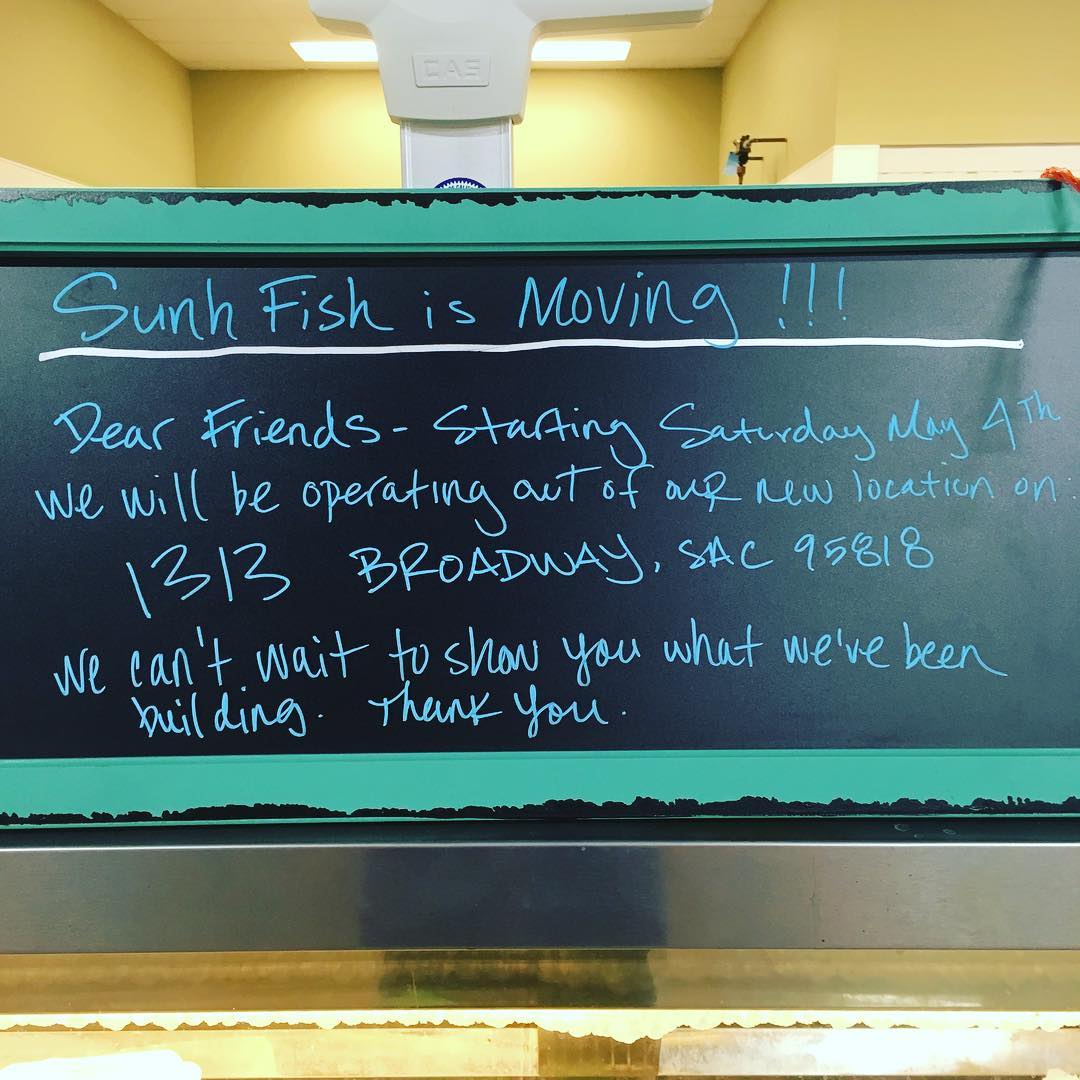 CAS
Sunh Fish is Moving !!!
Dear Friends - Starting Saturday May 4Th
we will be operating out of our new location on:
1313 BROADWAY, SAC 95818
We can't wait to show you what we've been
building. Thank you.